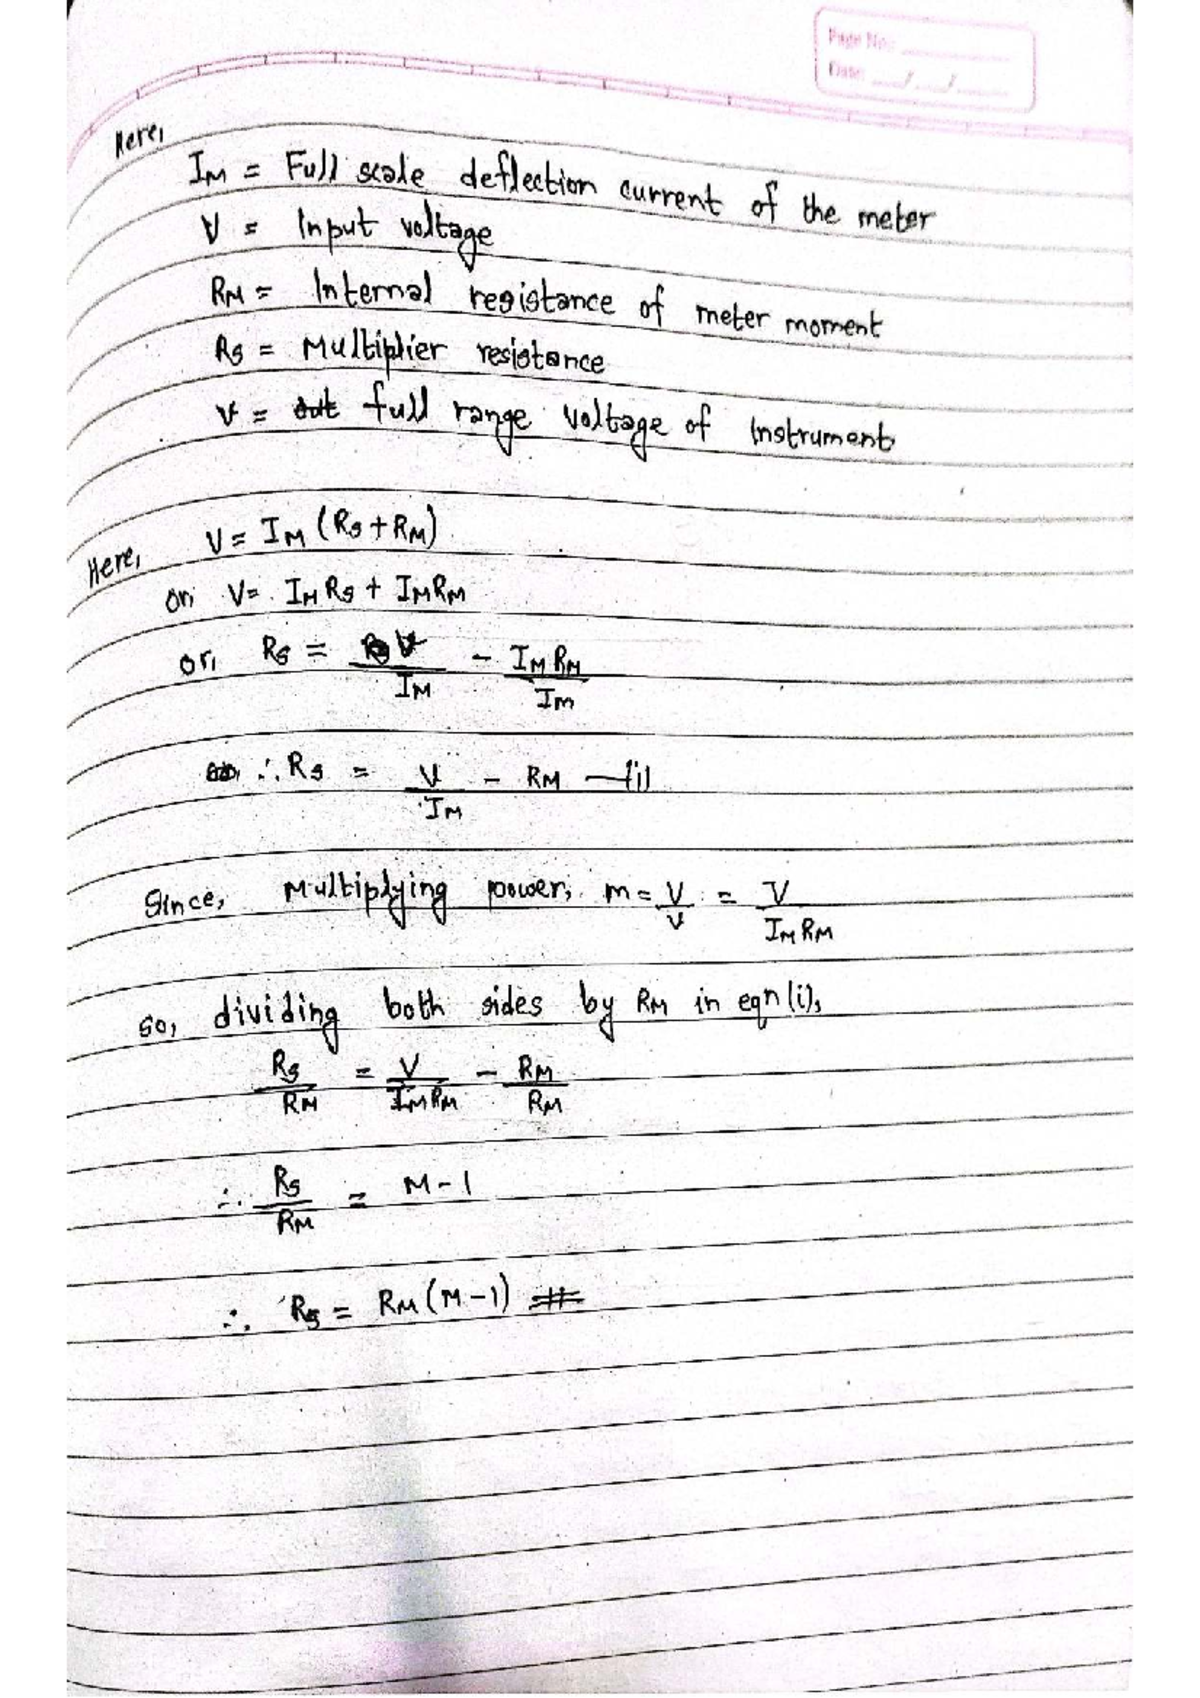 Page No:
Date: __/__/__
Here,
IM = Full scale deflection current of the meter
V = Input voltage
RM = Internal resistance of meter moment
Rs = Multiplier resistance
V = full range voltage of Instrument
Here, V = IM (Rs + RM)
or, V = IM Rs + IM RM
or, Rs = V/IM - IM RM/IM
∴ Rs = V/IM - RM —(i)
Since, Multiplying power, m = V/v = V/IM RM
So, dividing both sides by RM in eqn (i),
Rs/RM = V/IM RM - RM/RM
∴ Rs/RM = M - 1
∴ Rs = RM (M - 1) #